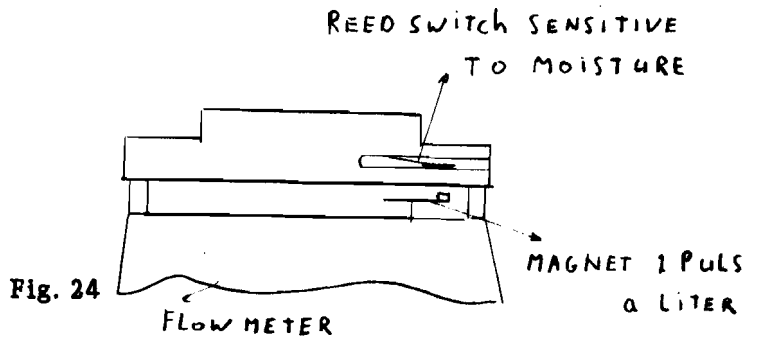 REED SWITCH SENSITIVE
TO MOISTURE
MAGNET 1 PULS
a LITER
Fig. 24
FLOW METER